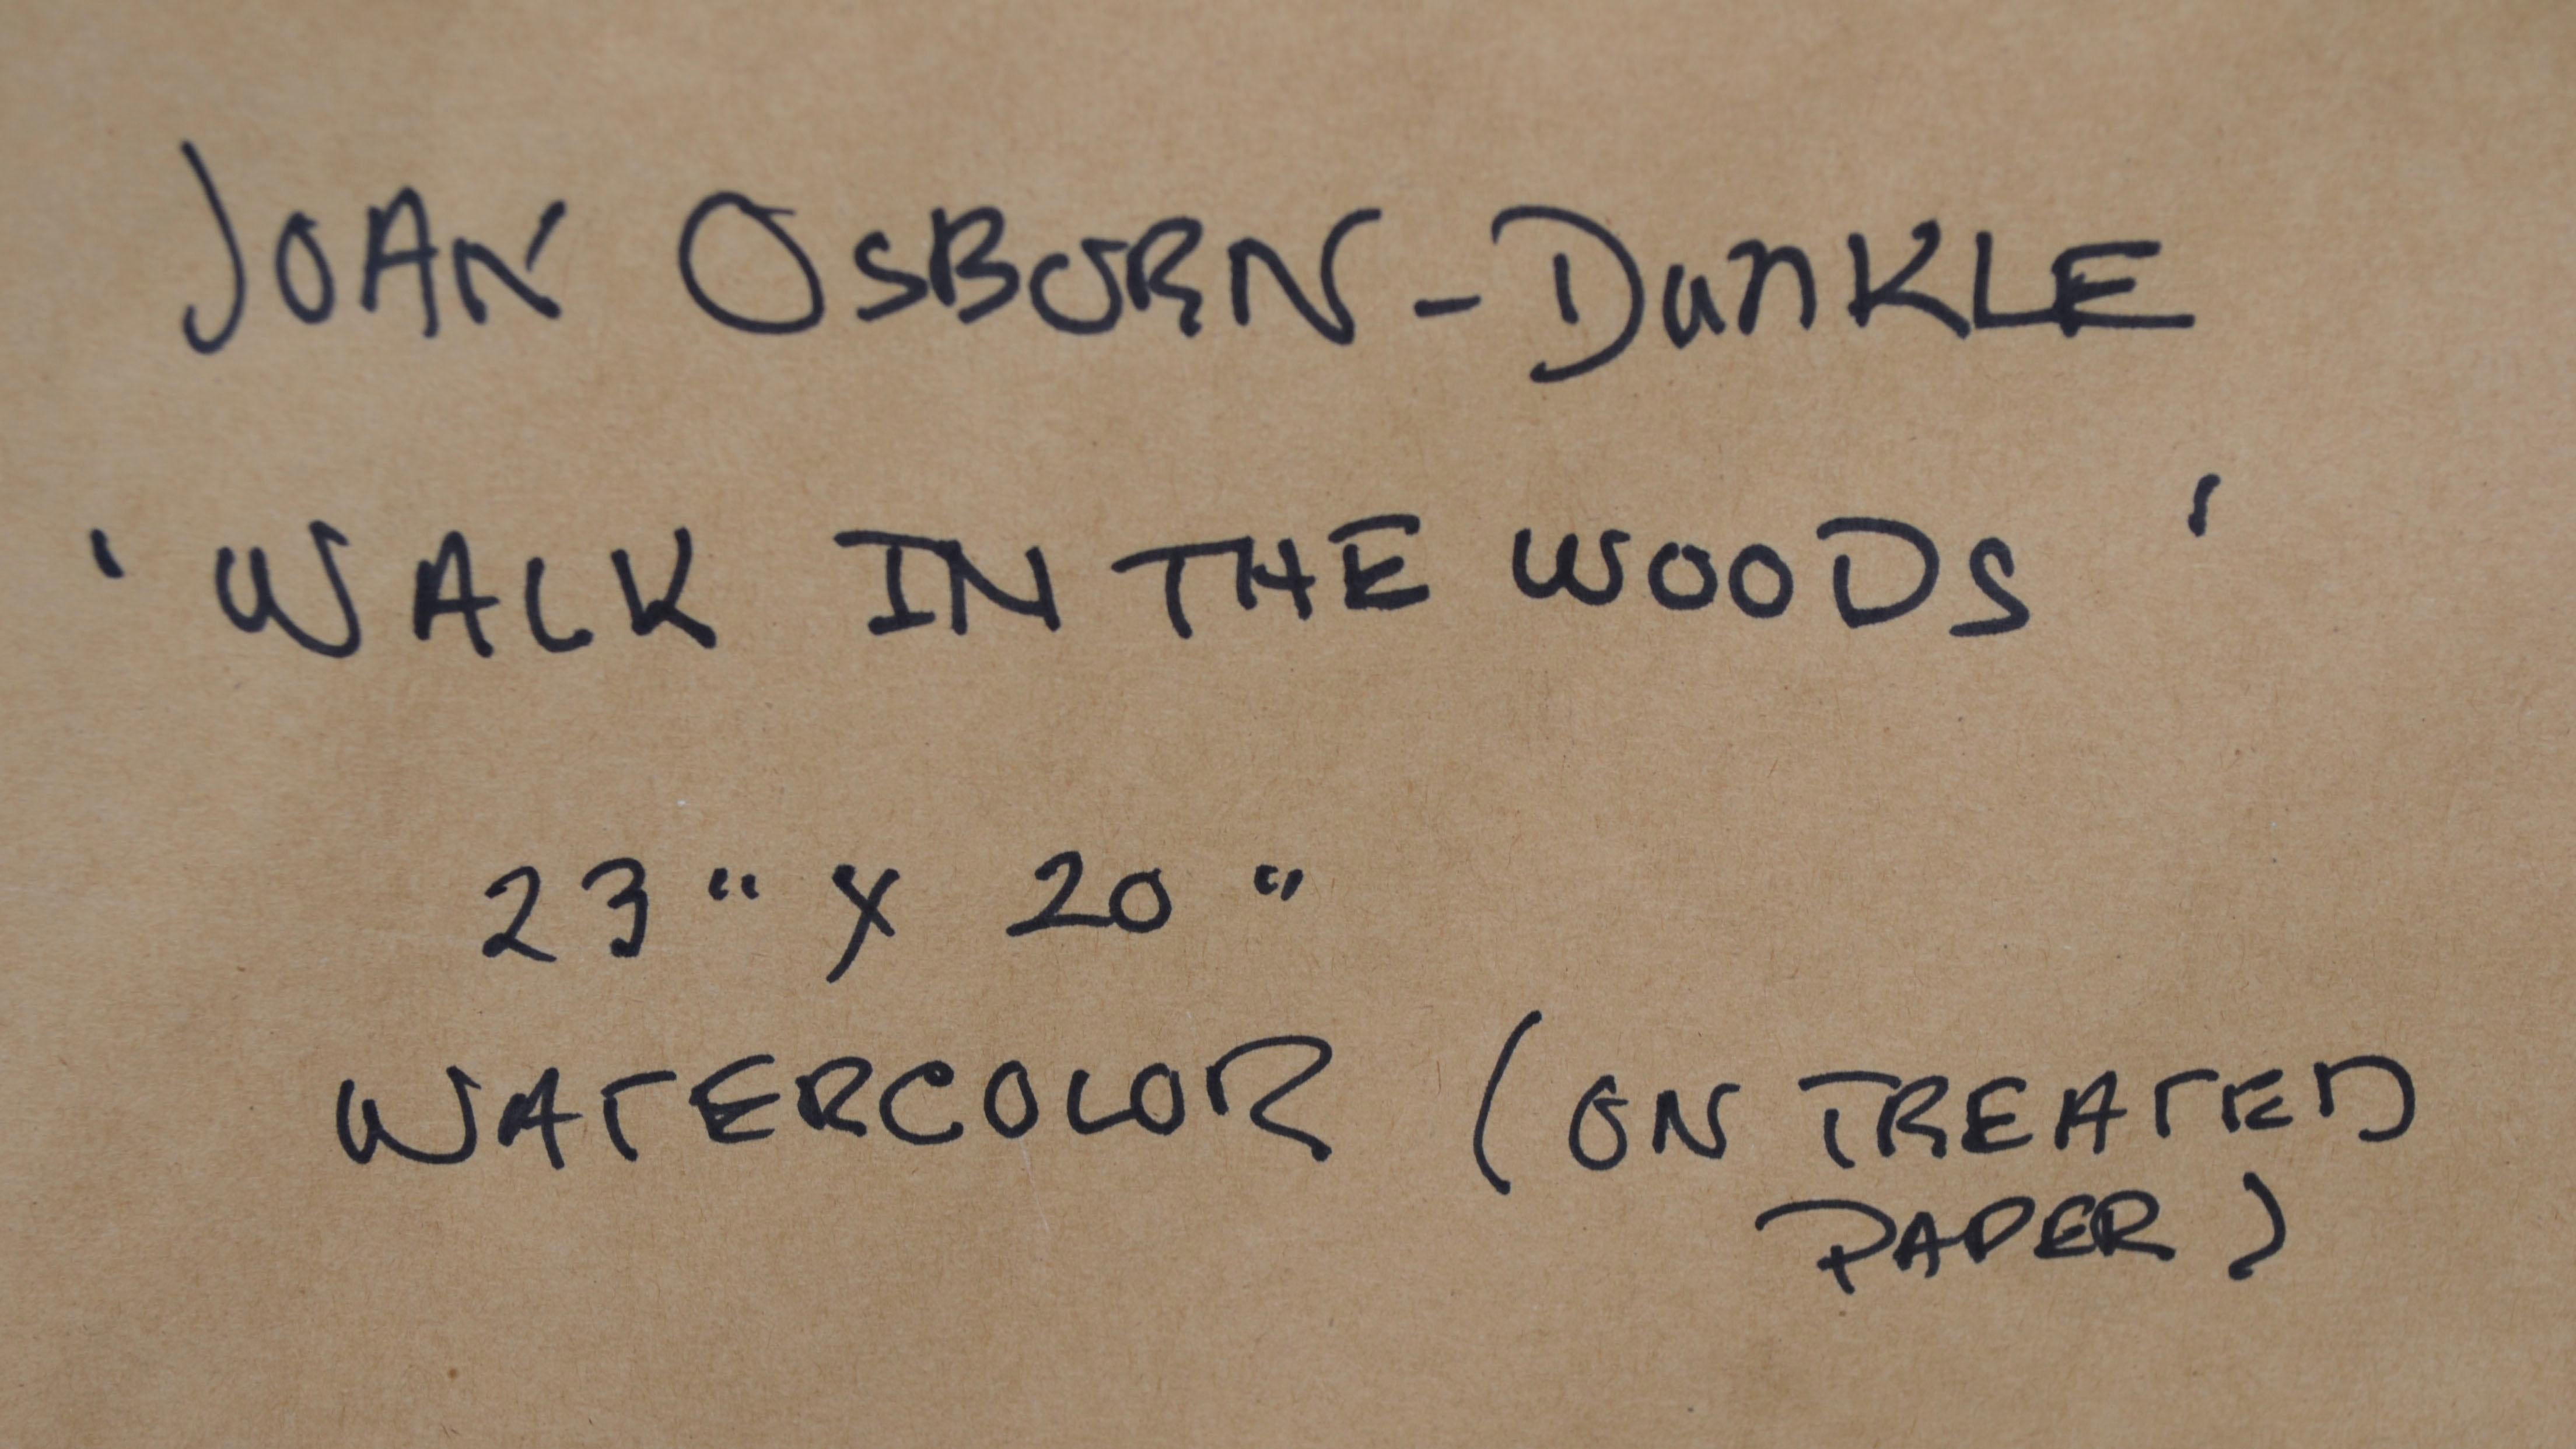 JOAN OSBORN-DUNKLE
'WALK IN THE WOODS'
23" X 20"
WATERCOLOR (ON TREATED
PAPER)